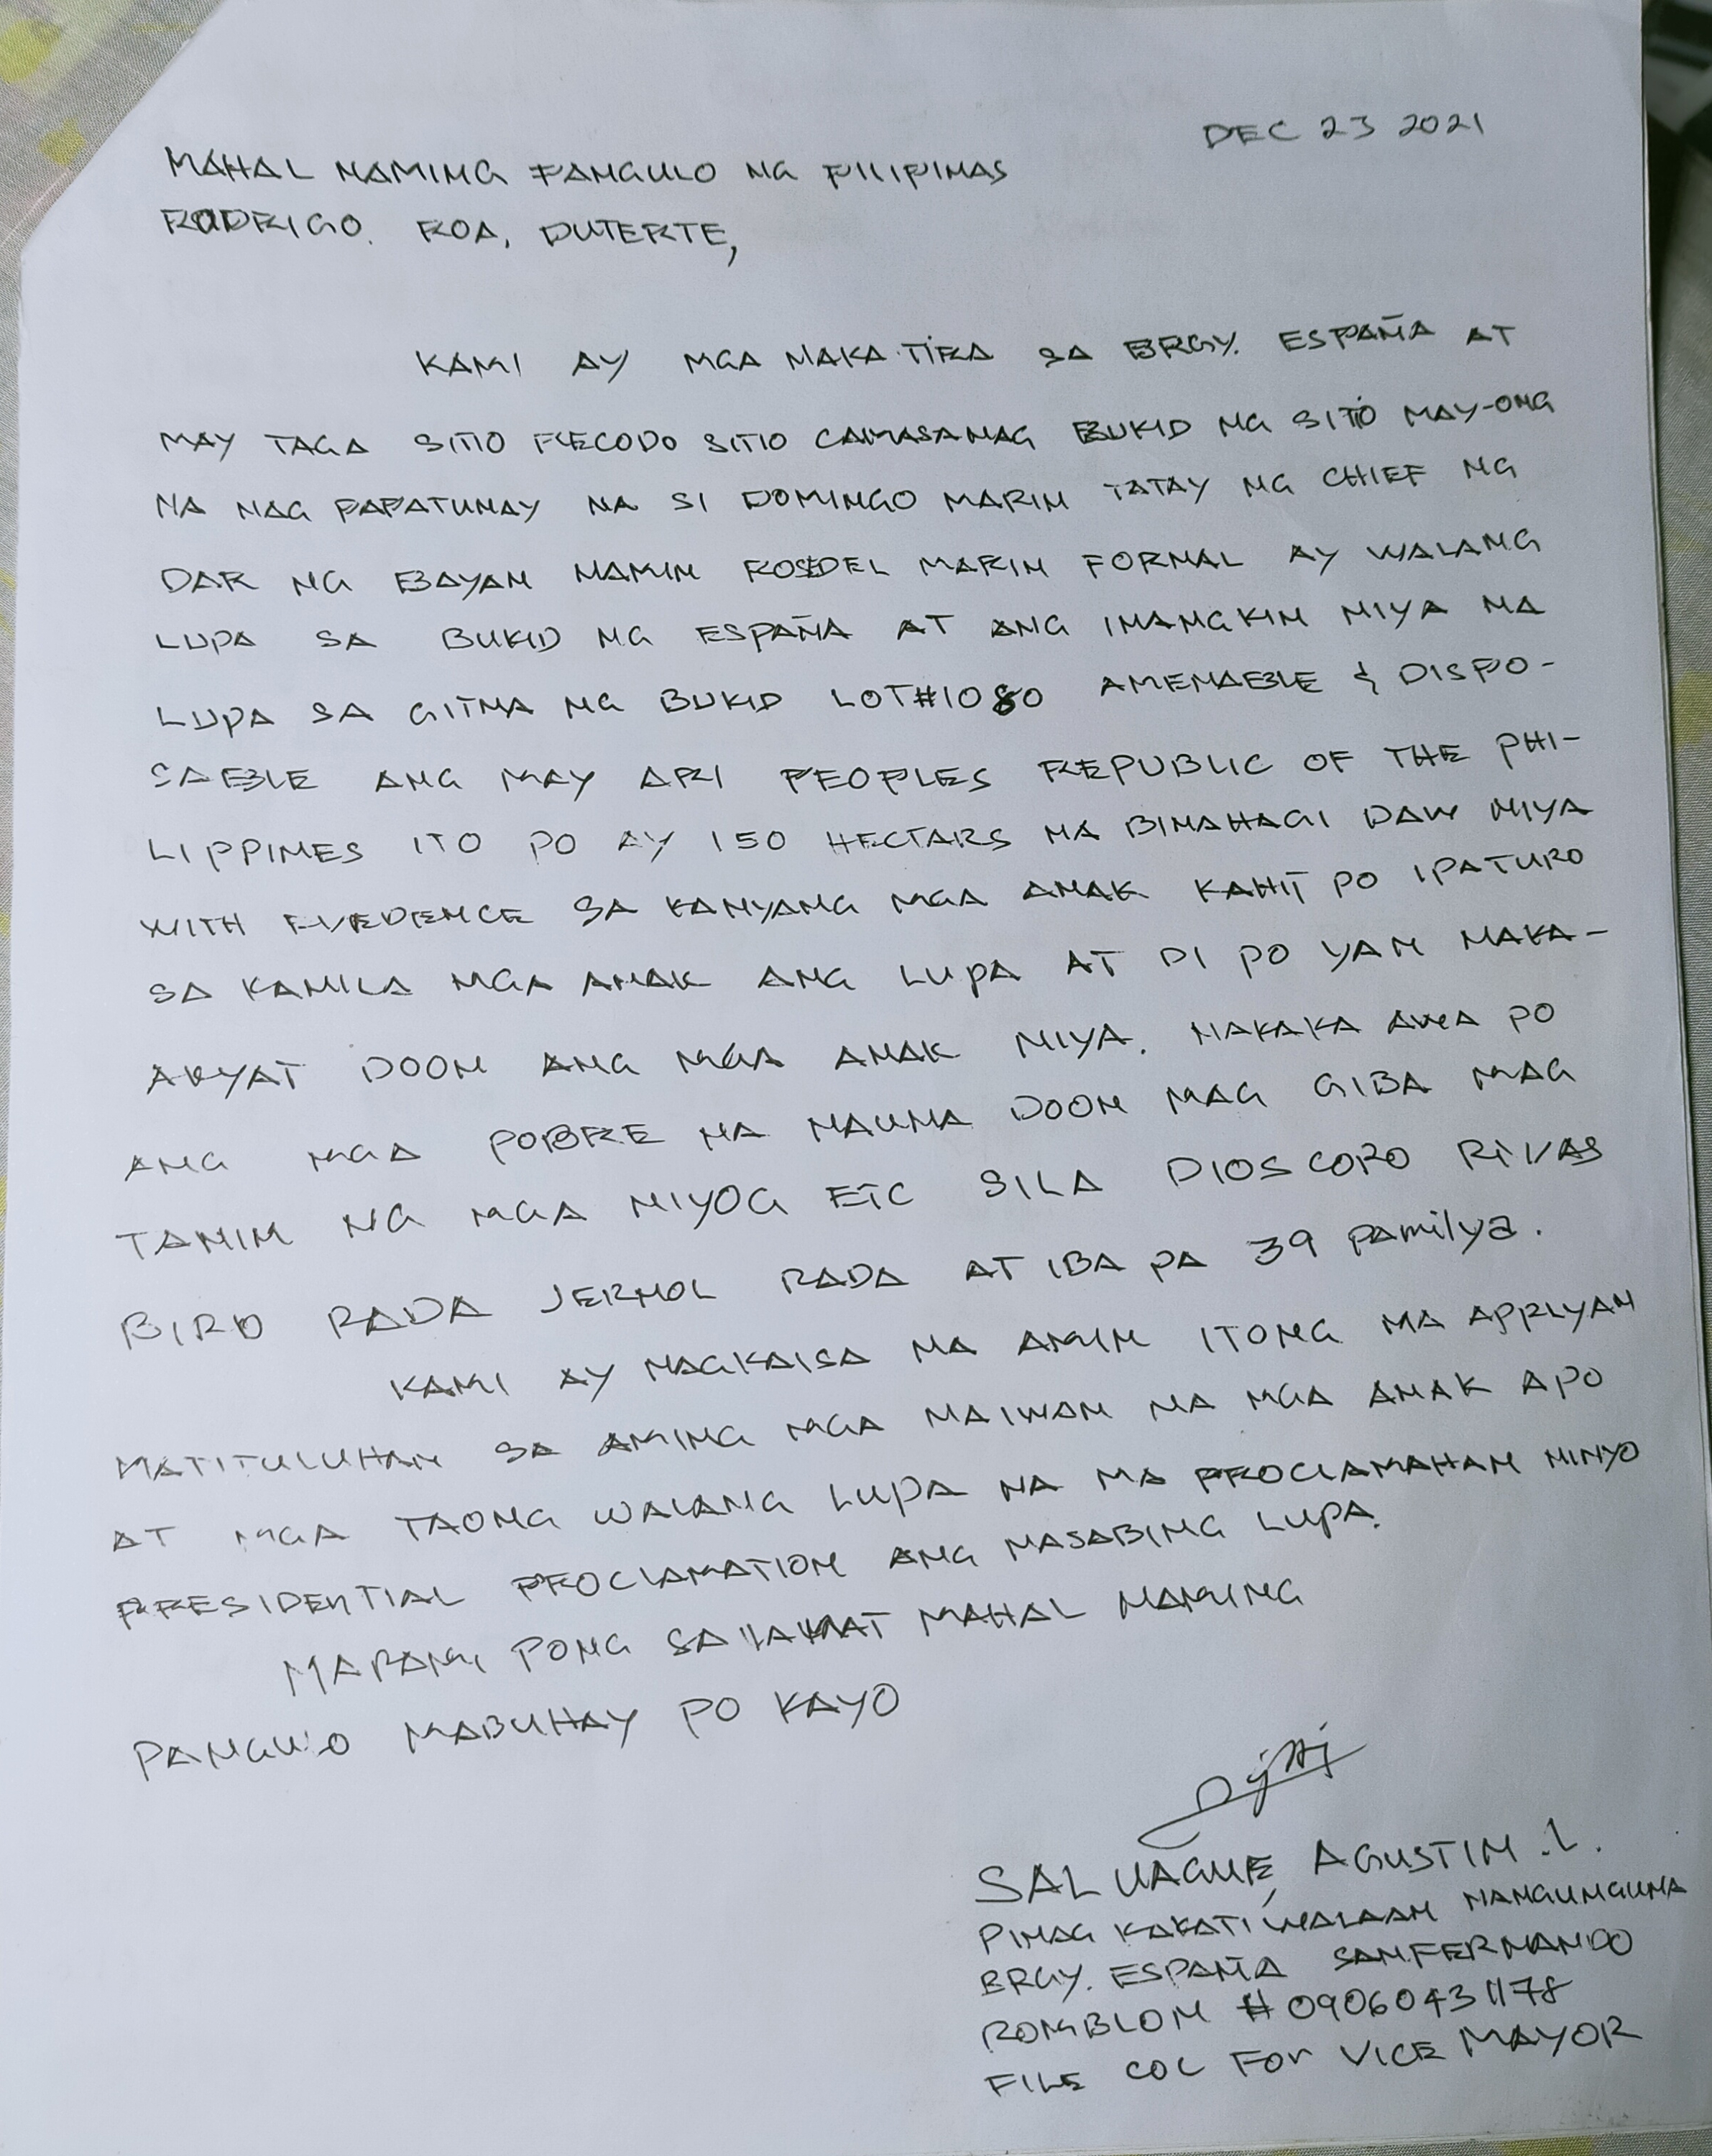 DEC 23 2021
MAHAL NAMING PANGULO NG PILIPINAS
RODRIGO. ROA, DUTERTE,
KAMI AY MGA NAKA TIRA SA BRGY. ESPAÑA AT
MAY TAGA SITIO RECODO SITIO CAMASANAG BUKID NG SITIO MAY-ONG
NA NAG PAPATUNAY NA SI DOMINGO MARIN TATAY NG CHIEF NG
DAR NG BAYAN NAMIN ROSDEL MARIN FORNAL AY WALANG
LUPA SA BUKID NG ESPAÑA AT ANG INANGKIN NIYA NA
LUPA SA GITNA NG BUKID LOT#1080 AMENABLE & DISPO-
SABLE ANG MAY ARI PEOPLES REPUBLIC OF THE PHI-
LIPPINES ITO PO AY 150 HECTARS NA BINAHAGI DAW NIYA
WITH EVEDENCE SA KANYANG MGA ANAK KAHIT PO IPATURO
SA KANILA MGA ANAK ANG LUPA AT DI PO YAN MAKA-
AKYAT DOON ANG MGA ANAK NIYA. NAKAKA AWA PO
ANG MGA POBRE NA NAUNA DOON MAG GIBA MAG
TANIM NG MGA NIYOG ETC SILA DIOSCORO RIVAS
BIRD RADA JERMOL RADA AT IBA PA 39 PAMILYA.
KAMI AY NAGKAISA NA AMIN ITONG MA APPLYAN
MATITULUHAN SA AMING MGA MAIWAN NA MGA ANAK APO
AT MGA TAONG WALANG LUPA NA MA PROCLAMAHAN NINYO
PRESIDENTIAL PROCLAMATION ANG NASABING LUPA.
MARAMI PONG SALAMAT MAHAL NAMING
PANGULO MABUHAY PO KAYO
SALVAGUE, AGUSTIN .L.
PINAG KAKATIWALAAN NANGUNGUNA
BRGY. ESPAÑA SANFERNANDO
ROMBLON # 09060431178
FILE COC FOR VICE MAYOR